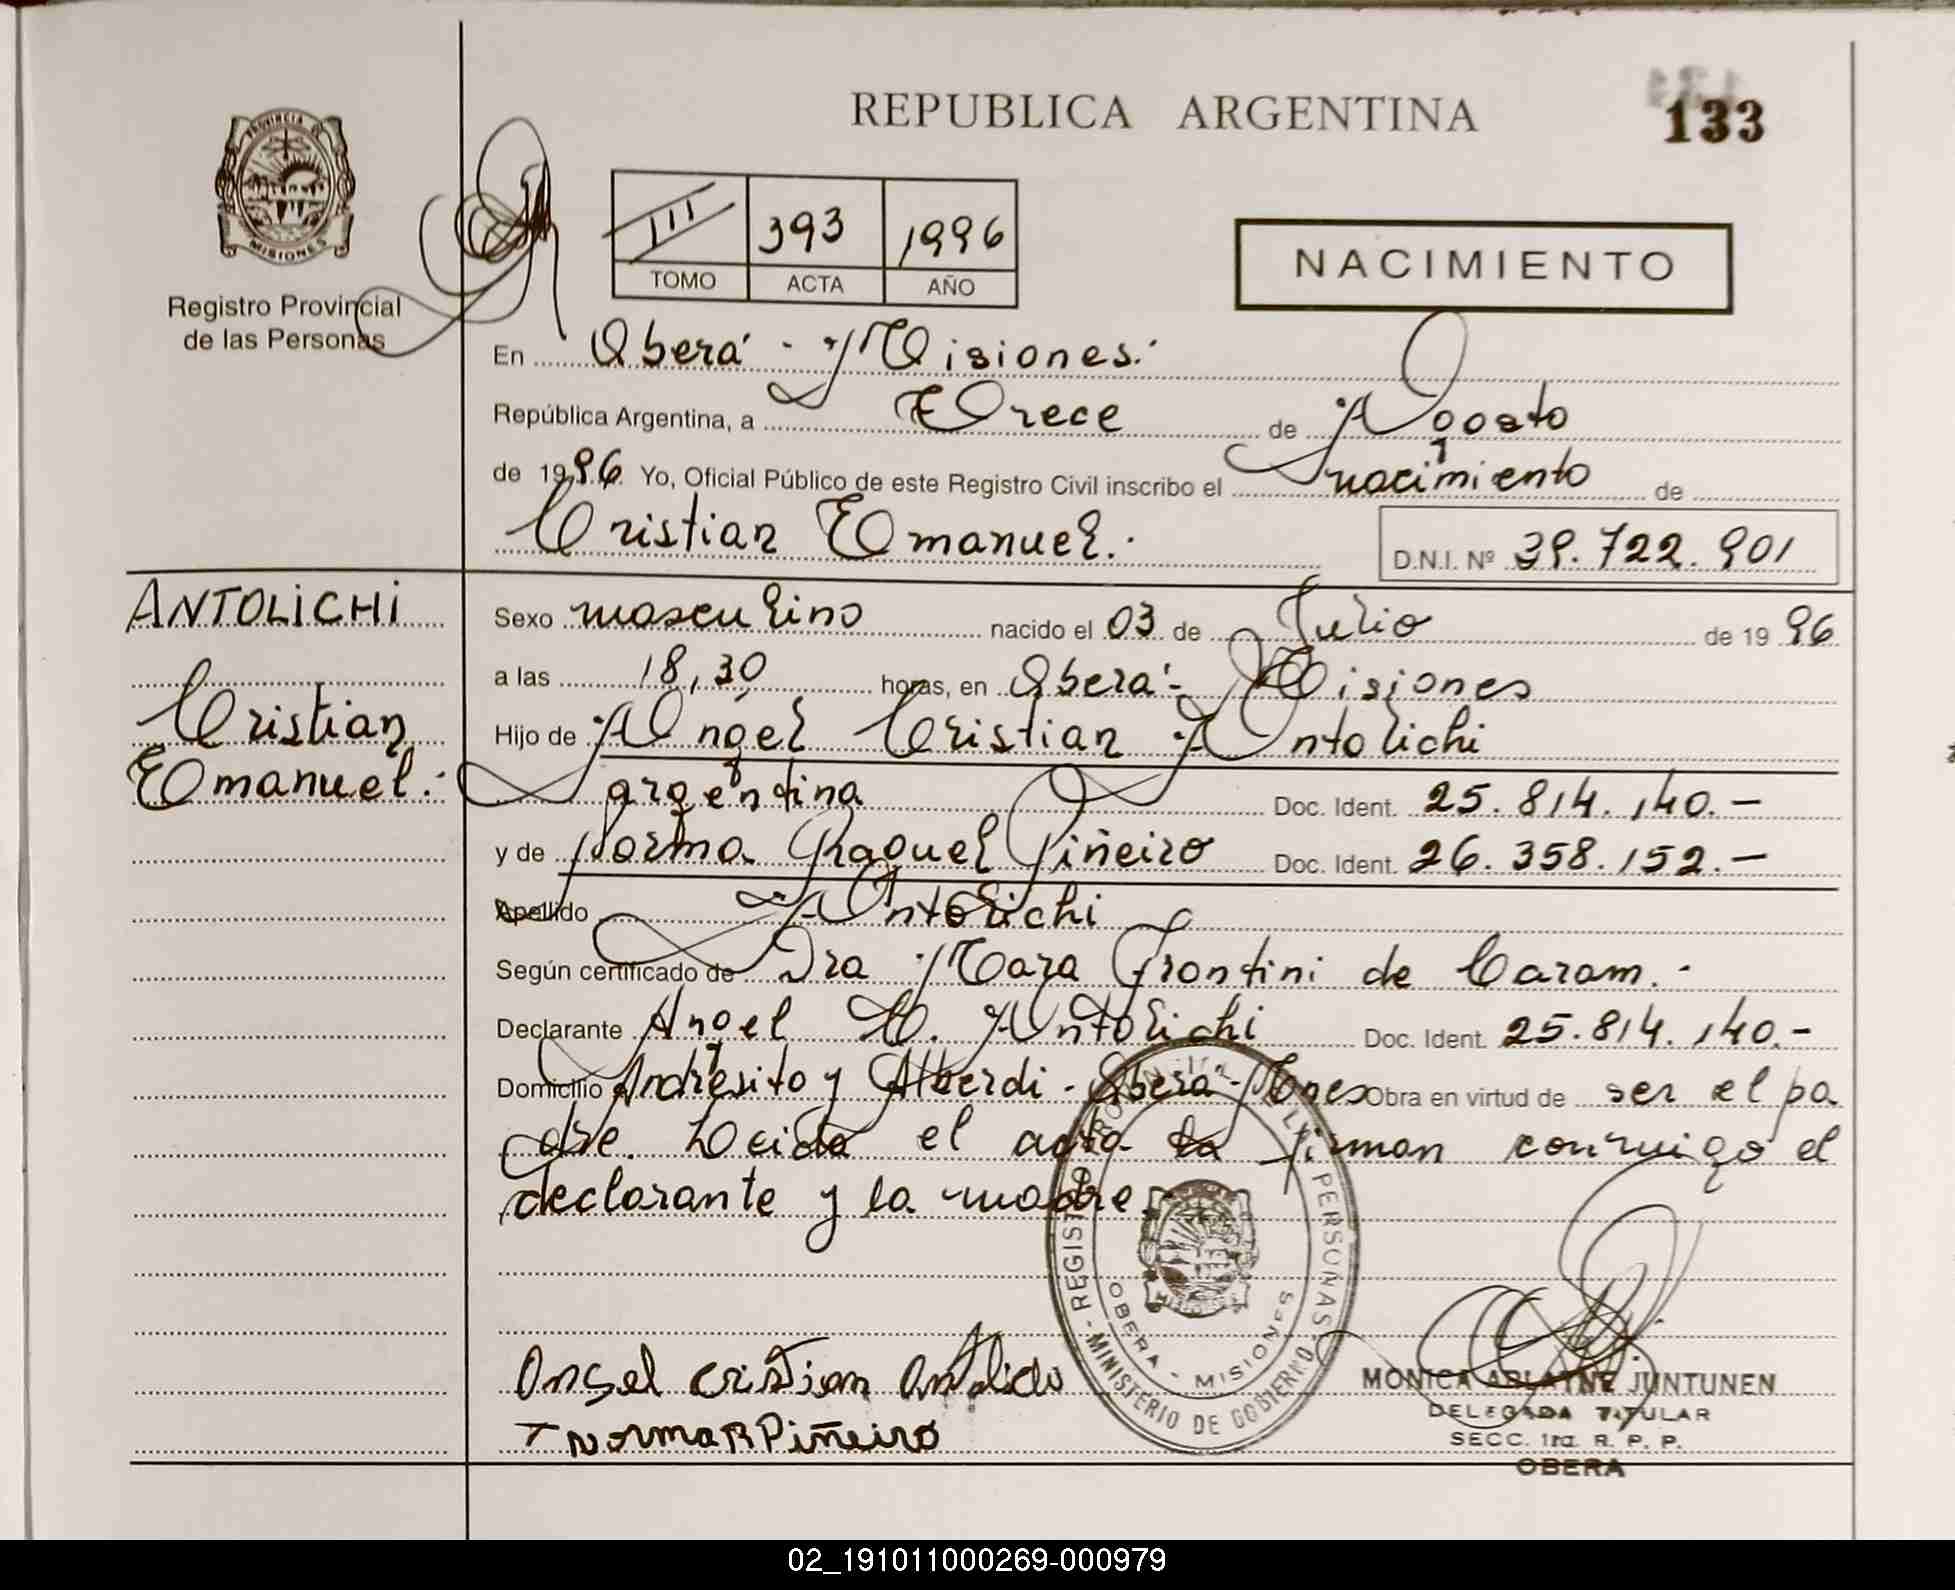 REPUBLICA ARGENTINA
133
PROVINCIA DE
MISIONES
Registro Provincial
de las Personas
III 393 1996
TOMO ACTA AÑO
NACIMIENTO
En Oberá - Misiones.
República Argentina, a Trece de Agosto
de 1996. Yo, Oficial Público de este Registro Civil inscribo el nacimiento de
Cristian Emanuel.
D.N.I. Nº 39.722.901
ANTOLICHI
Cristian
Emanuel.
Sexo masculino nacido el 03 de Julio de 1996
a las 18,30 horas, en Oberá - Misiones
Hijo de Angel Cristian Antolichi
argentina Doc. Ident. 25.814.140.-
y de Norma Raquel Piñeiro Doc. Ident. 26.358.152.-
Apellido Antolichi
Según certificado de Dra Mara Frontini de Caram.-
Declarante Angel C. Antolichi Doc. Ident. 25.814.140.-
Domicilio Andresito y Alberdi - Oberá - Mnes Obra en virtud de ser el pa
dre. Leida el acta la firman conmigo el
declarante y la madre.
REGISTRO PROVINCIAL DE LAS PERSONAS
MINISTERIO DE GOBIERNO
OBERA - MISIONES
Angel Cristian Antolichi
Norma R Piñeiro
MONICA ARLAYNE JUNTUNEN
DELEGADA TITULAR
SECC. 1ra. R. P. P.
OBERA
02_191011000269-000979